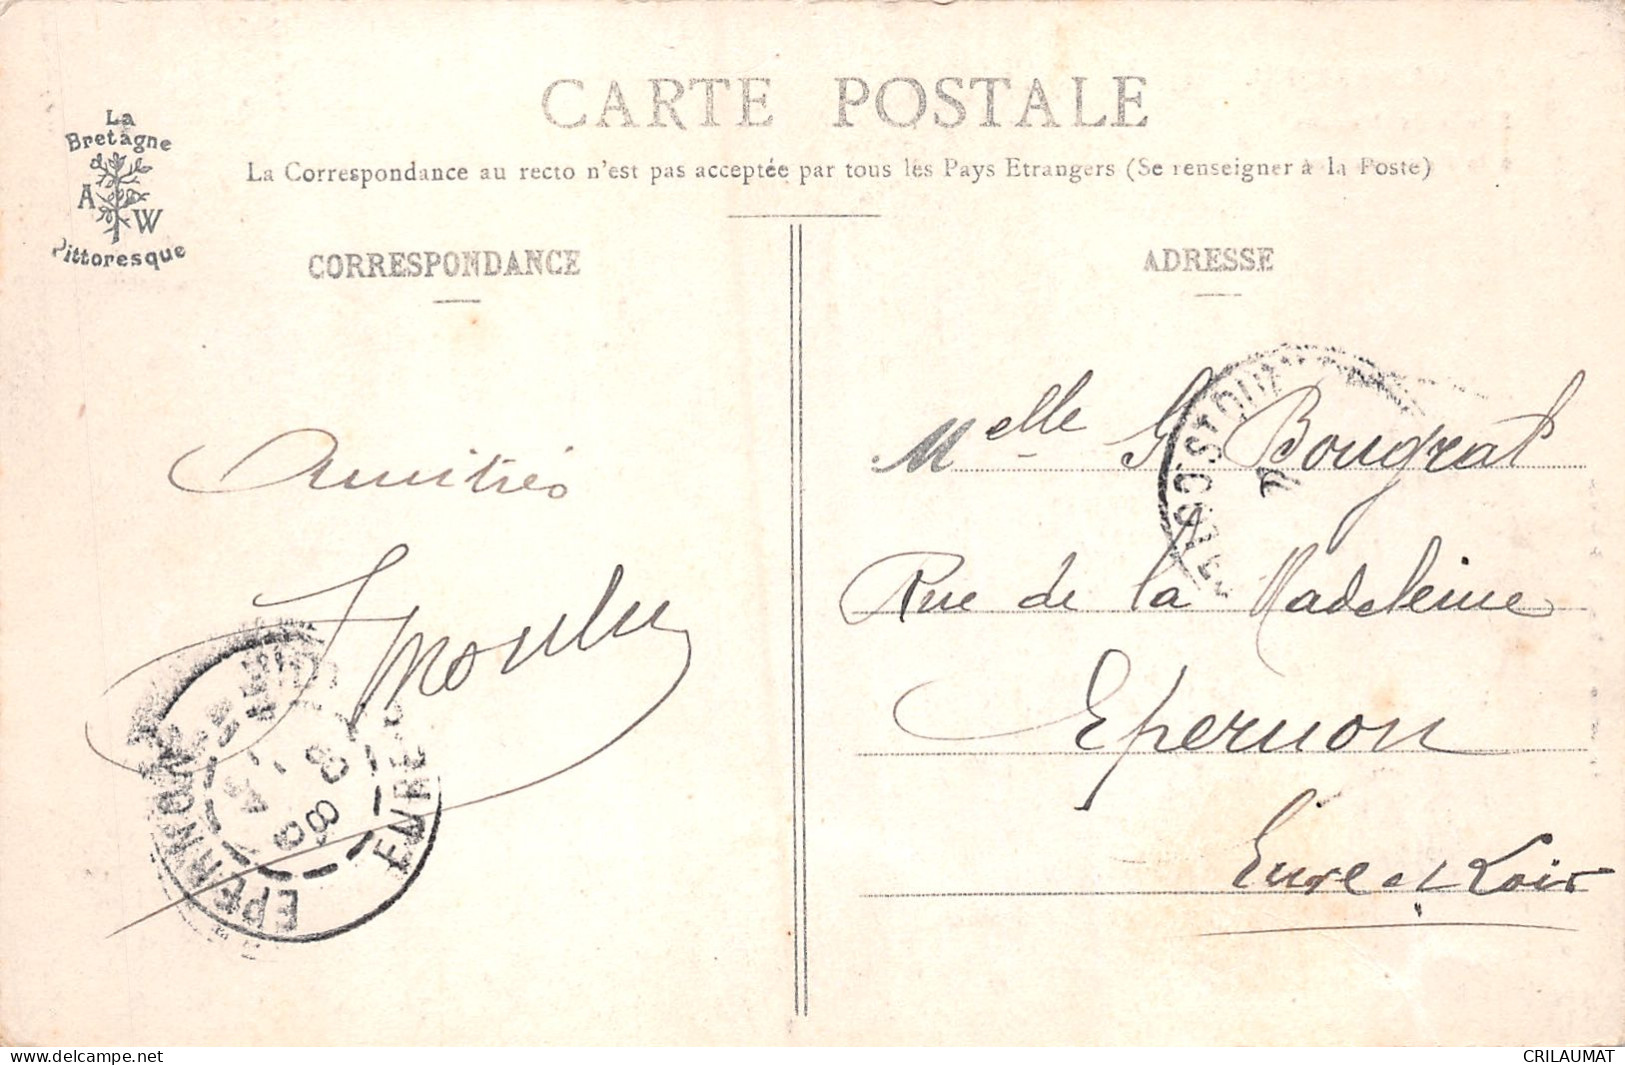 CARTE POSTALE
La
Bretagne
A W
Pittoresque
La Correspondance au recto n'est pas acceptée par tous les Pays Etrangers (Se renseigner à la Poste)
CORRESPONDANCE
ADRESSE
Amitiés
Melle G. Bougrat
Rue de la Madeleine
Epernon
Eure et Loir
EPERNON
EURE
8
08
www.delcampe.net
CRILAUMAT